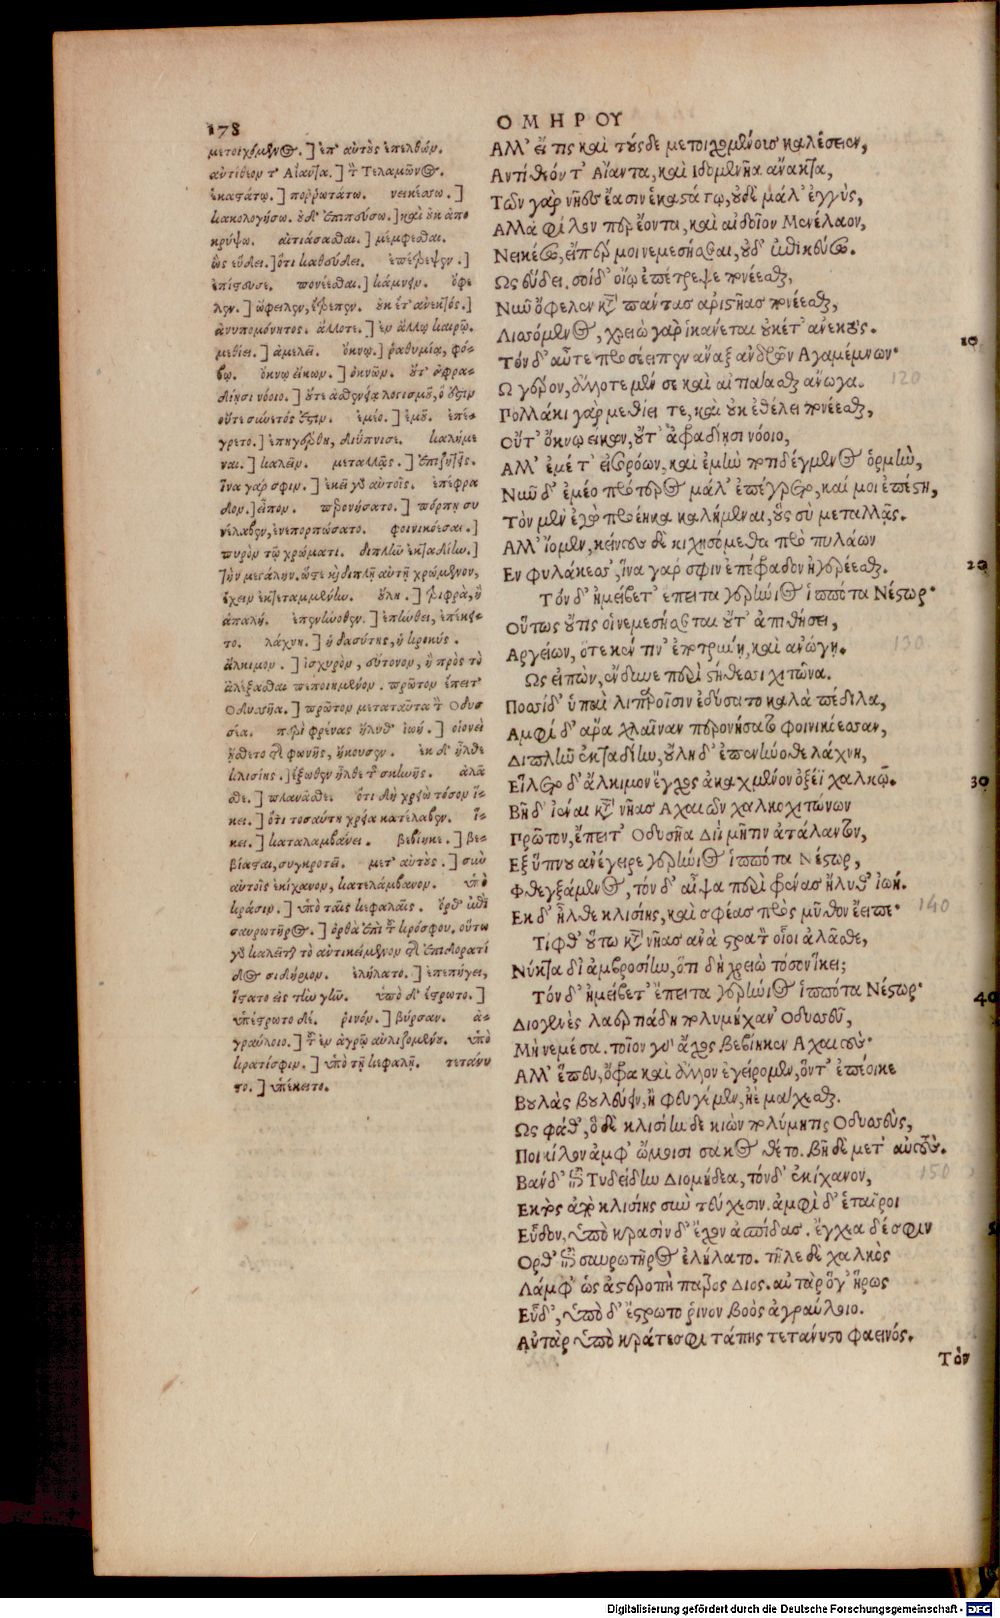 178
ΟΜΗΡΟΥ
μετοιχόμενος.] ἐπ' αὐτοὺς ἐπελθών.
ἀντίθεον τ' Αἴαντα.] τὸν Τελαμῶνος.
ἑκαστάτω.] ποῤῥωτάτω. νεικέσω.]
κακολογήσω. οὐδ' ἐπικεύσω.] καὶ οὐκ ἀπο
κρύψω. αἰτιάσασθαι.] μέμφεσθαι.
ὣς εὕδει.] ὅτι καθεύδει. ἐπέτρεψεν.]
ἐπίστευσε. πονέεσθαι.] κάμνειν. ὄφε
λεν.] ὤφειλεν, ἔπρεπεν. οὐκ ἔτ' ἀνεκτός.]
ἀνυπομόνητος. ἄλλοτε.] ἐν ἄλλῳ καιρῷ.
μεθίει.] ἀμελεῖ. ὄκνῳ.] ῥαθυμίᾳ, φό-
βῳ. ὄκνῳ εἴκων.] ὀκνῶν. οὔτ' ἀφρα-
δίῃσι νόοιο.]
οὔτε συνετός ἐστιν. ἐμέο.] ἐμοῦ. ἐπέ-
γρετο.] ἐπηγέρθη, διύπνισε. καλήμε
ναι.] καλεῖν. μεταλλᾷς.] ἐπιζητεῖς.
ἵνα γάρ σφιν.] ἐκεῖ γὰρ αὐτοῖς. ἐπέφρα
δον.] εἶπον. περονήσατο.] πόρπῃ συ
νέλαβεν, ἐνεπορπώσατο. φοινικόεσσαν.]
πυρὸν τῷ χρώματι. διπλῆν ἐκταδίην.]
τὴν μεγάλην, ὥστε καὶ διπλῇ αὐτῇ χρώμενον,
ἔχειν ἐκτεταμμένην. οὔλη.] τριφερὰ, ἢ
ἁπαλή. ἐπενήνοθεν.] ἐπῶθει, ἐπέκει-
το. λάχνη.] ἡ δασύτης, ἡ κροκύς.
ἄλκιμον.] ἰσχυρὸν, εὔτονον, ἢ πρὸς τὸ
ἀλέξασθαι πεποιημένον. πρῶτον ἔπειτ'
Ὀδυσσῆα.] πρῶτον μεταταῦτα τὸν Ὀδυσ
σέα. περὶ φρένας ἤλυθ' ἰωή.] οἱονεὶ
ᾔσθετο τῆς φωνῆς, ἤκουσεν. ἐκ δ' ἦλθε
κλισίης.] ἔξωθεν ἦλθε τῆς σκηνῆς. ἀλᾶ
σθε.] πλανᾶσθε. ὅτι δὴ χρειὼ τόσον ἵ-
κει.] ὅτι τοσαύτη χρεία κατέλαβεν. ἵ-
κει.] καταλαμβάνει. βεβίηκε.] βε-
βίασται, συγκροτεῖ. μετ' αὐτούς.] σὺν
αὐτοῖς ἐκίχανον, κατελάμβανον. ὑπὸ
κράσιν.] ὑπὸ ταῖς κεφαλαῖς. ὀρθ' ἐπὶ
σαυρωτῆρος.] ὀρθὰ ἐπὶ τοῦ κρόσφου. οὕτω
γὰρ καλεῖται τὸ ἀντικείμενον τῆς ἐπιδορατί
δος σιδήριον. ἐλήλατο.] ἐπεπήγει,
ἵστατο εἰς τὴν γῆν. ὑπὸ δ' ἔστρωτο.]
ὑπέστρωτο δέ. ῥινόν.] βύρσαν. ἀ-
γραύλοιο.] τοῦ ἐν ἀγρῷ αὐλιζομένου. ὑπὸ
κρατέσφιν.] ὑπὸ τῇ κεφαλῇ. τετάνυ
το.] ὑπέκειτο.
Αλλ' εἴ τις καὶ τούσδε μετοιχόμενος καλέσειεν,
Αντίθεόν τ' Αἴαντα, καὶ Ιδομενῆα ἄνακτα,
Τῶν γὰρ νῆες ἔασιν ἑκαστάτω, οὐδὲ μάλ' ἐγγὺς,
Αλλὰ φίλον περ ἐόντα, καὶ αἰδοῖον Μενέλαον,
Νεικέσω, εἴπερ μοι νεμεσήσεαι, οὐδ' ἐπικεύσω.
Ως εὕδει. σοὶ δ' οἴῳ ἐπέτρεψε πονέεσθαι,
Νῦν ὄφελεν κατὰ πάντας ἀριστῆας πονέεσθαι,
Λισσόμενος, χρειὼ γὰρ ἱκάνεται οὐκέτ' ἀνεκτός.
10
Τόν δ' αὖτε προσέειπεν ἄναξ ἀνδρῶν Αγαμέμνων·
Ω γέρον, ἄλλοτε μέν σε καὶ αἰτιάασθαι ἄνωγα.
120
Πολλάκι γὰρ μεθίει τε, καὶ οὐκ ἐθέλει πονέεσθαι,
Οὔτ' ὄκνῳ εἴκων, οὔτ' ἀφραδίῃσι νόοιο,
Αλλ' ἐμέ τ' εἰσορόων, καὶ ἐμὴν ποτιδέγμενος ὁρμήν,
Νῦν δ' ἐμέο πρότερος μάλ' ἐπέγρετο, καί μοι ἐπέστη,
Τὸν μὲν ἐγὼ προέηκα καλήμεναι, οὓς σὺ μεταλλᾷς.
Αλλ' ἴομεν, κείνους δὲ κιχησόμεθα πρὸ πυλάων
20
Εν φυλάκεσσ', ἵνα γάρ σφιν ἐπέφραδον ἠγερέεσθαι.
Τόν δ' ἠμείβετ' ἔπειτα γερήνιος ἱππότα Νέστωρ·
Οὕτως οὔτις οἱ νεμεσήσεται οὔτ' ἀπιθήσει,
Αργείων, ὅτε κέν τιν' ἐποτρύνῃ, καὶ ἀνώγῃ.
130
Ως εἰπὼν, ἔνδυνε περὶ στήθεσσι χιτῶνα.
Ποσσὶ δ' ὑπαὶ λιπαροῖσιν ἐδύσατο καλὰ πέδιλα,
Αμφὶ δ' ἄρα χλαῖναν περονήσατο φοινικόεσσαν,
Διπλῆν ἐκταδίην, οὔλη δ' ἐπενήνοθε λάχνη,
30
Εἵλετο δ' ἄλκιμον ἔγχος ἀκαχμένον ὀξέϊ χαλκῷ.
Βῆ δ' ἰέναι κατὰ νῆας Αχαιῶν χαλκοχιτώνων
Πρῶτον, ἔπειτ' Οδυσῆα Διῒ μῆτιν ἀτάλαντον,
Εξ ὕπνου ἀνέγειρε γερήνιος ἱππότα Νέστωρ,
Φθεγξάμενος, τόν δ' αἶψα περὶ φρένας ἤλυθ' ἰωή.
Εκ δ' ἦλθε κλισίης, καὶ σφέας πρὸς μῦθον ἔειπε·
140
Τίφθ' οὕτω κατὰ νῆας ἀνὰ στρατὸν οἶοι ἀλᾶσθε,
Νύκτα δι' ἀμβροσίην, ὅτι δὴ χρειὼ τόσον ἵκει;
40
Τόν δ' ἠμείβετ' ἔπειτα γερήνιος ἱππότα Νέστωρ·
Διογενὲς λαερτιάδη πολυμήχαν' Οδυσσεῦ,
Μὴ νεμέσα. τοῖον γὰρ ἄχος βεβίηκεν Αχαιούς·
Αλλ' ἕπευ, ὄφρα καὶ ἄλλον ἐγείρομεν, ὅντ' ἐπέοικε
Βουλὰς βουλεύειν, ἢ φευγέμεν, ἠὲ μάχεσθαι.
Ως φάθ', ὁ δὲ κλισίην δε κιὼν πολύμητις Οδυσσεὺς,
Ποικίλον ἀμφ' ὤμοισι σάκος θέτο. βῆ δὲ μετ' αὐτούς.
150
Βὰν δ' ἐπὶ Τυδείδην Διομήδεα, τόνδ' ἐκίχανον,
Εκτὸς ἀπὸ κλισίης σὺν τεύχεσιν. ἀμφὶ δ' ἑταῖροι
Εὗδον, ὑπὸ κρασὶν δ' ἔχον ἀσπίδας. ἔγχεα δέ σφιν
Ορθ' ἐπὶ σαυρωτῆρος ἐλήλατο. τῆλε δὲ χαλκὸς
Λάμφ' ὡς ἀστεροπὴ πατρὸς Διός. αὐτὰρ ὅγ' ἥρως
Εὗδ', ὑπὸ δ' ἔστρωτο ῥινὸν βοὸς ἀγραύλοιο.
Αὐτὰρ ὑπὸ κράτεσφι τάπης τετάνυστο φαεινός.
Τὸν
Digitalisierung gefördert durch die Deutsche Forschungsgemeinschaft - DFG